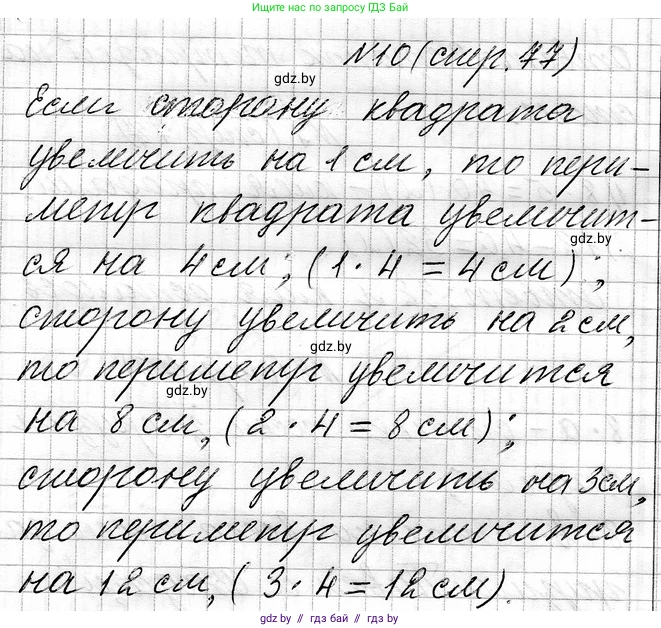 Ищите нас по запросу ГДЗ Бай
№10 (стр. 77)
gdz.by
Если сторону квадрата
увеличить на 1 см, то пери-
метр квадрата увеличит-
gdz.by
ся на 4 см; (1 · 4 = 4 см);
сторону увеличить на 2 см,
gdz.by
то периметр увеличится
gdz.by
на 8 см, (2 · 4 = 8 см);
сторону увеличить на 3 см,
то периметр увеличится
на 12 см, (3 · 4 = 12 см).
gdz.by // гдз бай // gdz.by